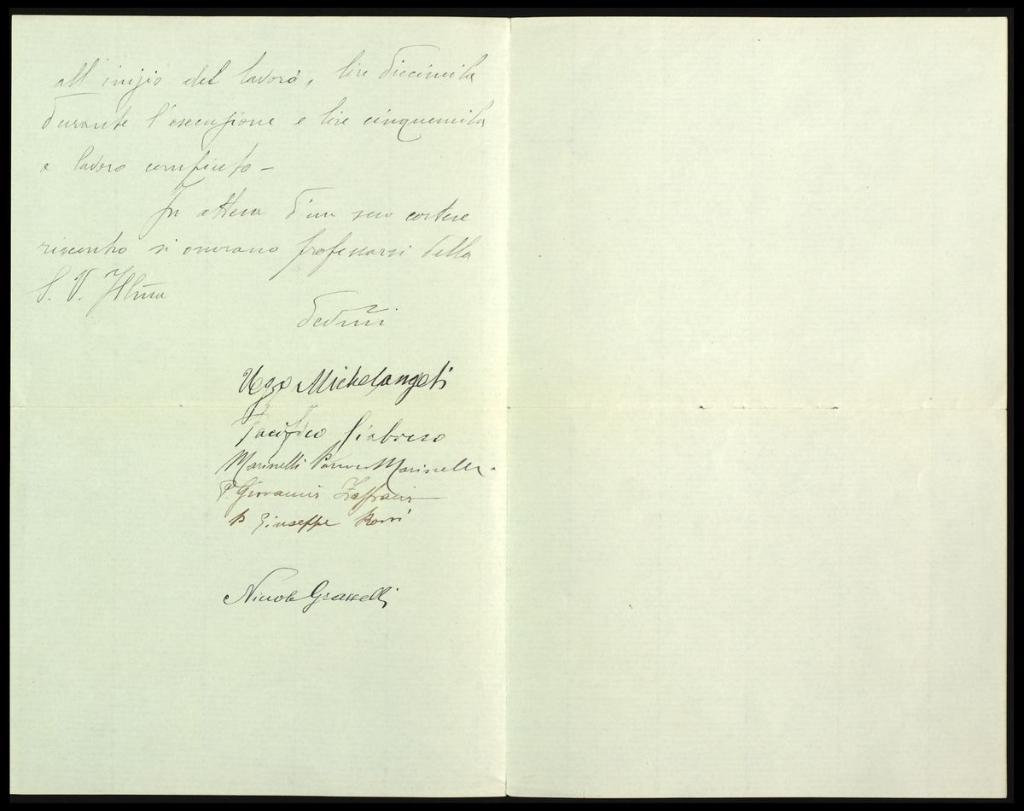 all'inizio del lavoro, lire diecimila
durante l'esecuzione e lire cinquemila
a lavoro compiuto –
In attesa d'un suo cortese
riscontro si onorano professarsi della
S. V. Ill̃ma
Deṽmi
Ugo Michelangeli
Pacifico
Marinelli Marinelli
P. Giovanni
P Giuseppe Rossi
Nicola Grasselli